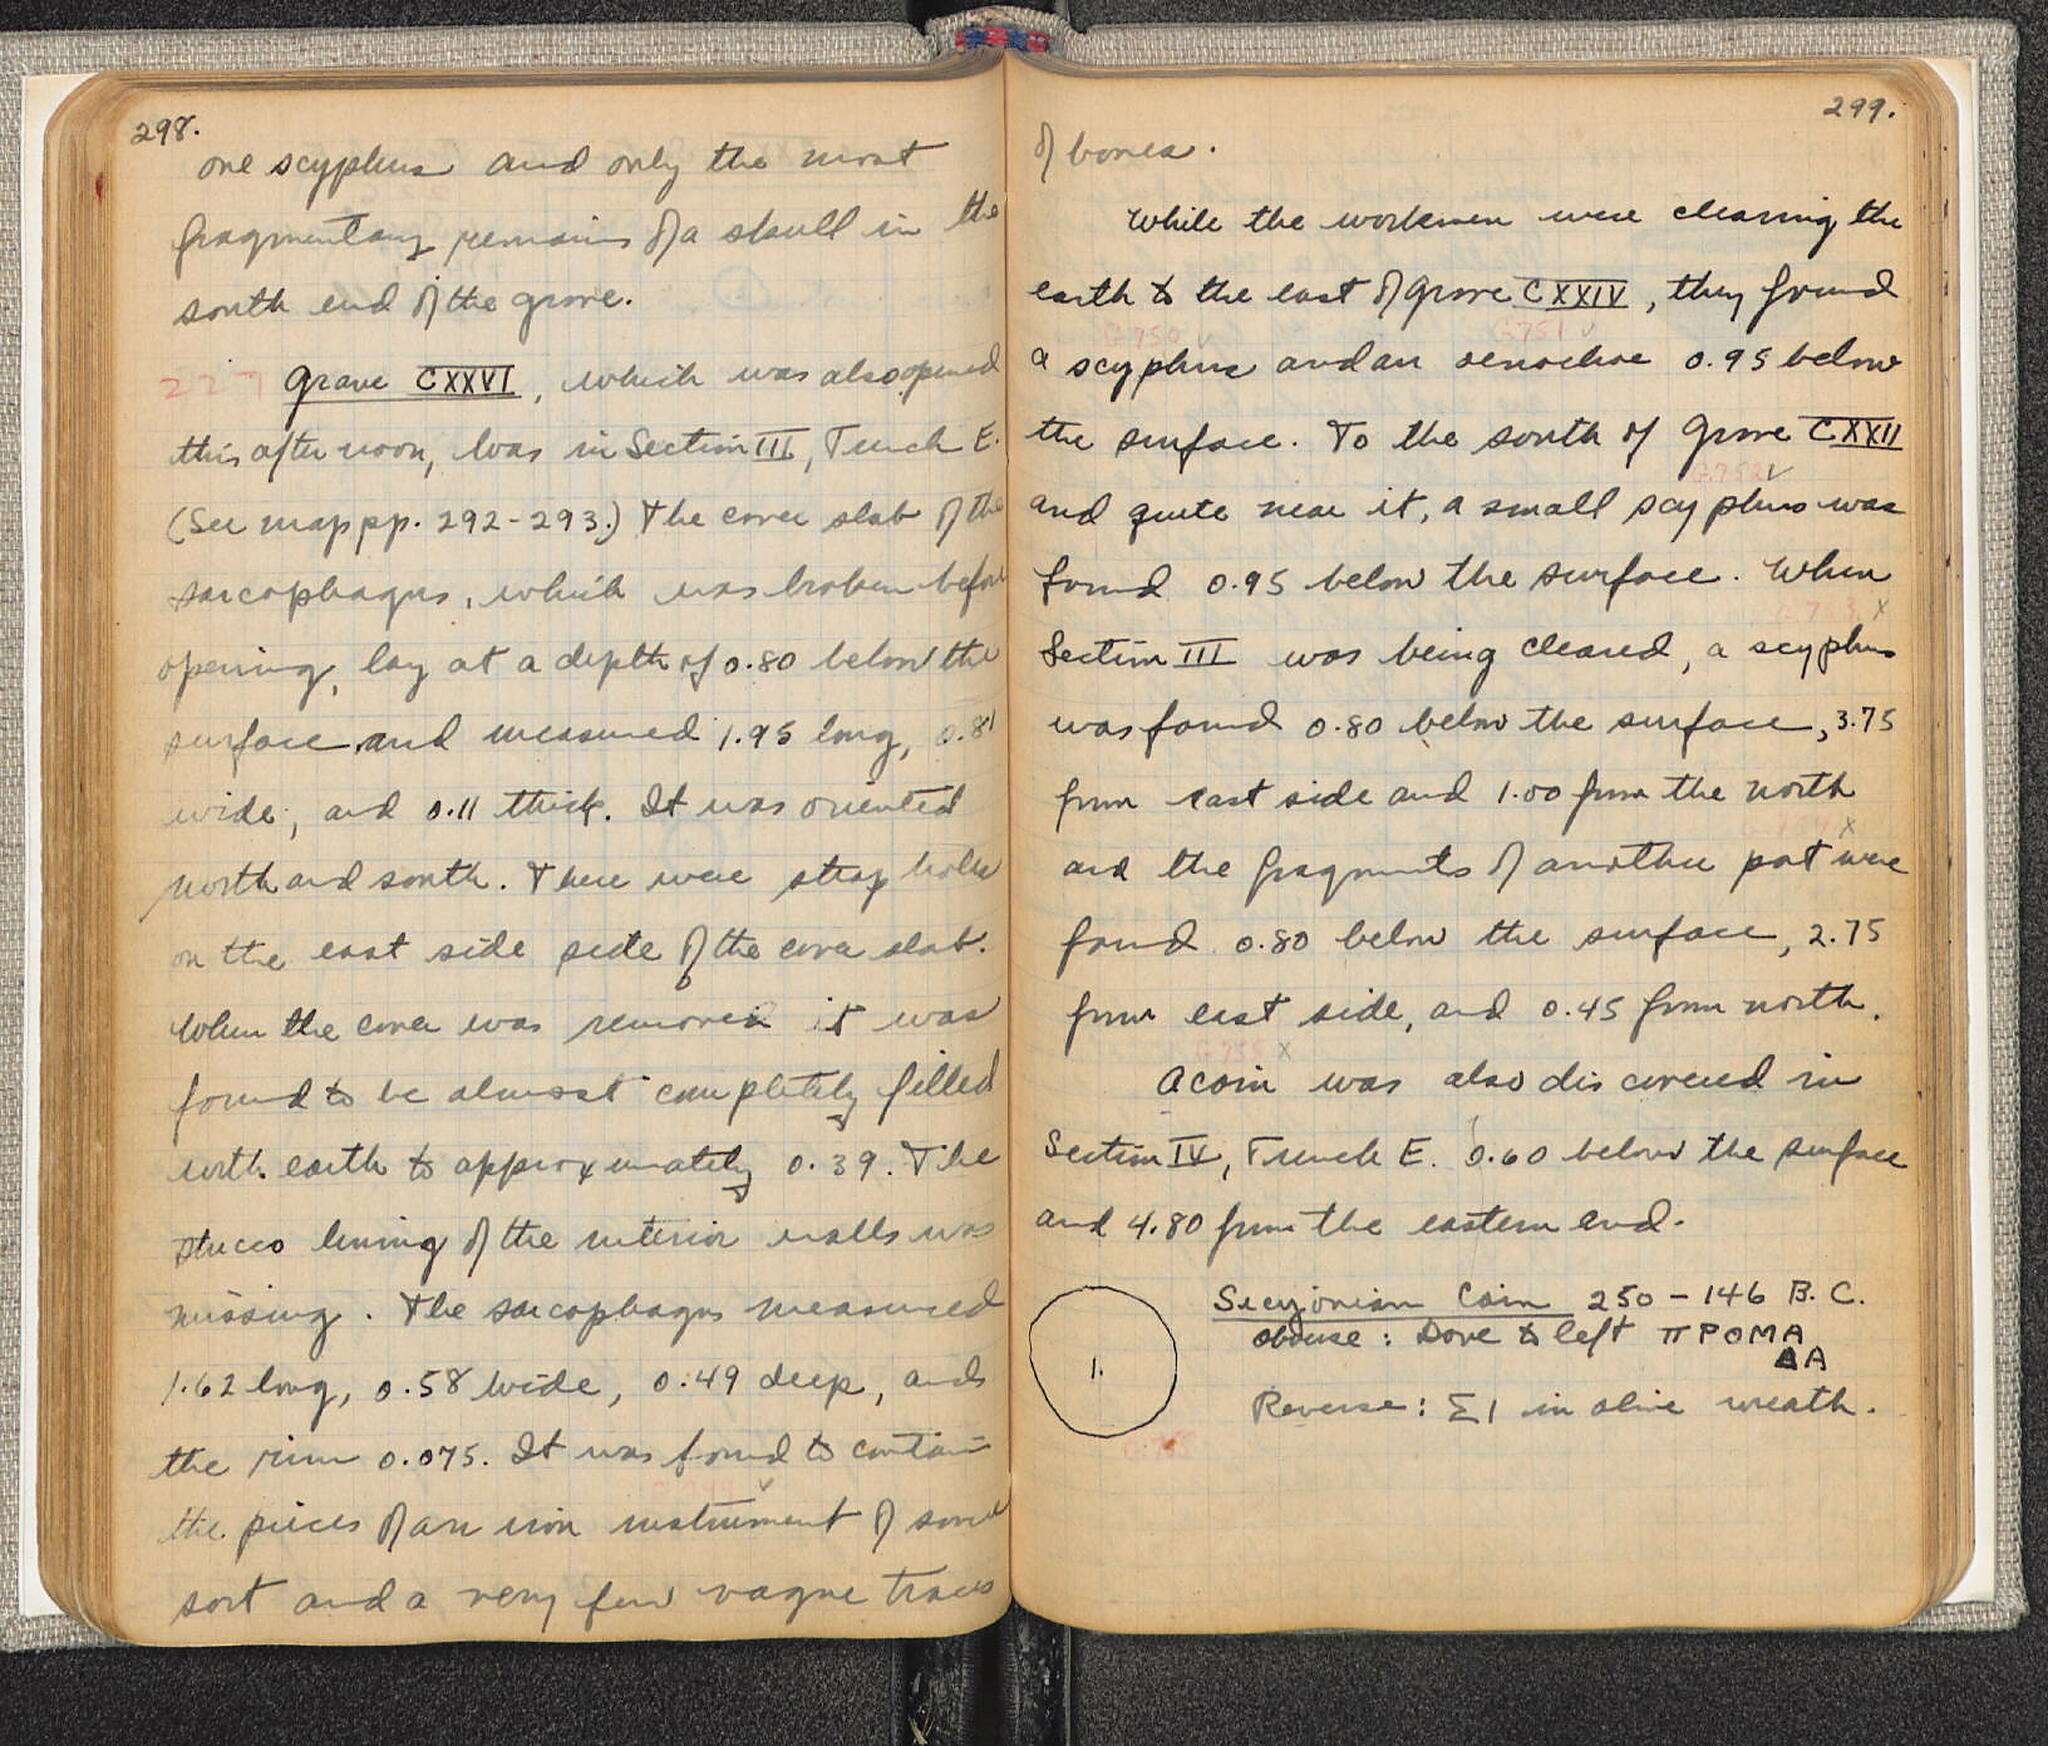 298.
one scyphus and only the most
fragmentary remains of a skull in the
south end of the grave.
227 Grave CXXVI, which was also opened
this afternoon, was in Section III, Trench E.
(See map pp. 292-293.) The cover slab of the
sarcophagus, which was broken before
opening, lay at a depth of 0.80 below the
surface and measured 1.95 long, 0.81
wide, and 0.11 thick. It was oriented
north and south. There were strap holes
on the east side side of the cover slab.
When the cover was removed it was
found to be almost completely filled
with earth to approximately 0.39. The
stucco lining of the interior walls was
missing. The sarcophagus measured
1.62 long, 0.58 wide, 0.49 deep, and
the rim 0.075. It was found to contain
the pieces of an iron instrument of some
sort and a very few vague traces
299.
of bones.
While the workmen were clearing the
earth to the east of Grave CXXIV, they found
G750 v G751 v
a scyphus and an oenochoe 0.95 below
the surface. To the south of Grave CXXII
G752 v
and quite near it, a small scyphus was
found 0.95 below the surface. When
x
Section III was being cleared, a scyphus
was found 0.80 below the surface, 3.75
from east side and 1.00 from the north
x
and the fragments of another pot were
found 0.80 below the surface, 2.75
from east side, and 0.45 from north.
G755 x
A coin was also discovered in
Section IV, Trench E. 0.60 below the surface
and 4.80 from the eastern end.
Sicyonian Coin 250 - 146 B.C.
obverse: Dove to left ΠΡΟΜΑ
ΔΑ
1.
Reverse: ΣΙ in olive wreath.